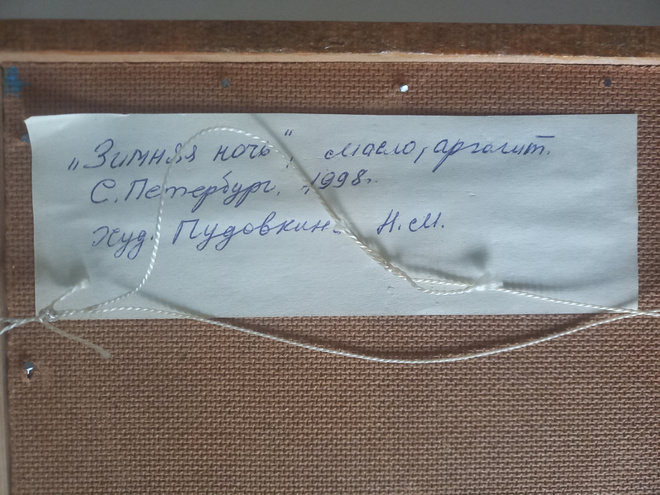 „Зимняя ночь", масло, аргалит.
С. Петербург. 1998г.
Худ. Пудовкин Н.М.